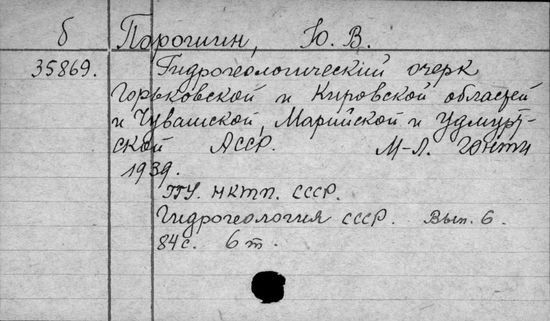 б Порошин, Ю. В.
35869. Гидрогеологический очерк
Горьковской и Кировской областей
и Чувашской, Марийской и Удмурт-
ской АССР. М-Л. ГОНТИ
1939.
ГГУ. НКТП. СССР.
Гидрогеология СССР. Вып. 6.
84 с. 6 т.